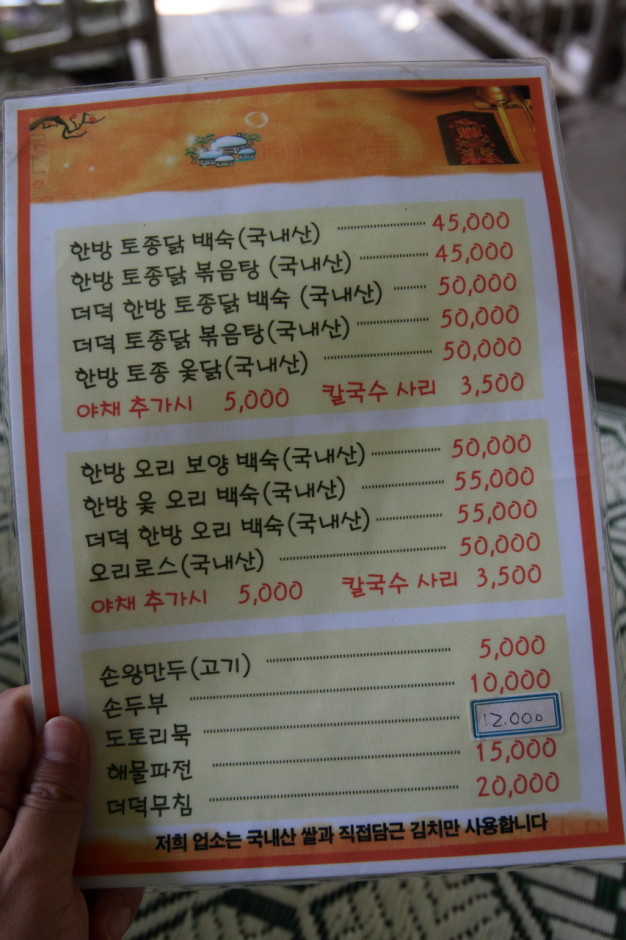 한방 토종닭 백숙(국내산) 45,000
한방 토종닭 볶음탕 (국내산) 45,000
더덕 한방 토종닭 백숙 (국내산) 50,000
더덕 토종닭 볶음탕(국내산) 50,000
한방 토종 옻닭(국내산) 50,000
야채 추가시 5,000 칼국수 사리 3,500
한방 오리 보양 백숙(국내산) 50,000
한방 옻 오리 백숙(국내산) 55,000
더덕 한방 오리 백숙(국내산) 55,000
오리로스(국내산) 50,000
야채 추가시 5,000 칼국수 사리 3,500
손왕만두(고기) 5,000
손두부 10,000
도토리묵 12.000
해물파전 15,000
더덕무침 20,000
저희 업소는 국내산 쌀과 직접담근 김치만 사용합니다